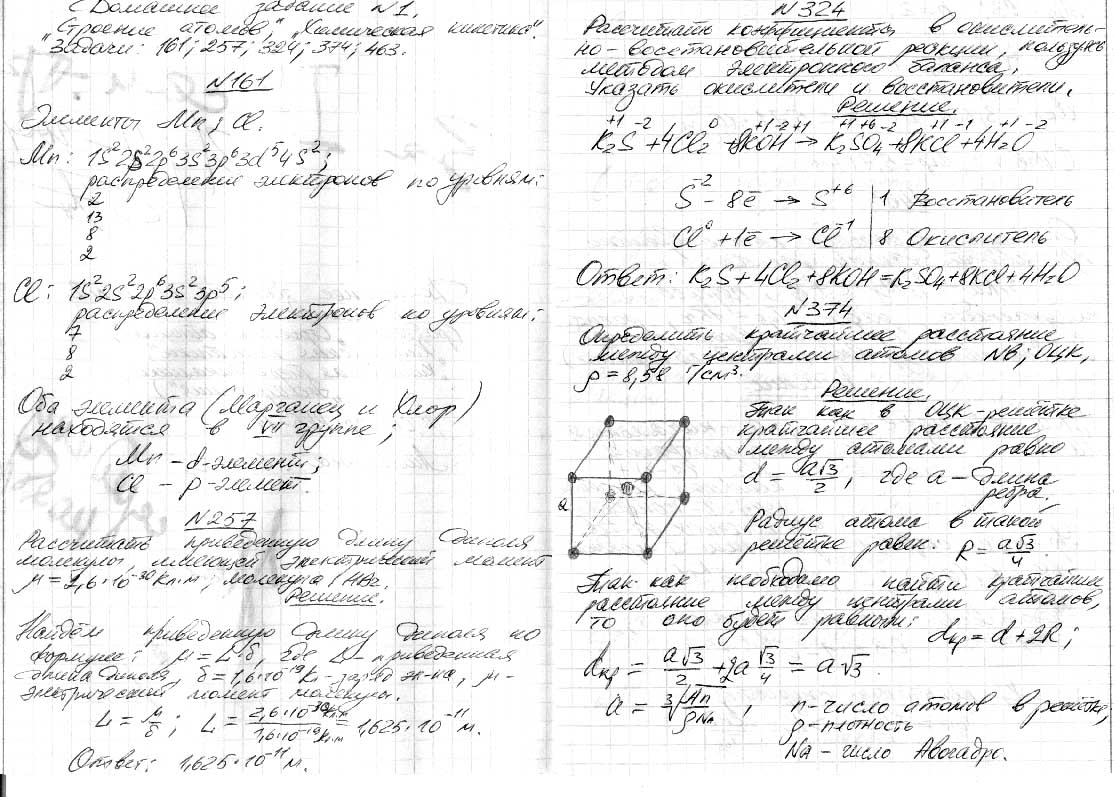 Домашнее задание N1.
"Строение атомов", "Химическая кинетика".
Задачи: 161; 257; 324; 374; 463.
N161
Элементы Mn; Cl.
Mn: 1S²2S²2p⁶3S²3p⁶3d⁵4S²;
распределение электронов по уровням:
2
13
8
2
Cl: 1S²2S²2p⁶3S²3p⁵;
распределение электронов по уровням:
7
8
2
Оба элемента (Марганец и Хлор)
находятся в VII группе;
Mn – d-элемент;
Cl – p-элемент.
N257
Рассчитать приведенную длину диполя
молекулы, имеющей электрический момент
μ = 2,6·10⁻³⁰ Кл·м; молекула
Решение.
Найдём приведенную длину диполя по
формуле: μ = L·δ, где L – приведенная
длина диполя, δ = 1,6·10⁻¹⁹ Кл – заряд эл-на, μ –
электрический момент молекулы.
L = μ/δ; L = 2,6·10⁻³⁰ Кл·м / 1,6·10⁻¹⁹ Кл·м = 1,625·10⁻¹¹ м.
Ответ: 1,625·10⁻¹¹ м.
N324
Рассчитать коэффициенты в окислитель-
но-восстановительной реакции, пользуясь
методом электронного баланса.
Указать окислители и восстановители.
Решение.
+1 -2 0 +1 -2 +1 +1 +6 -2 +1 -1 +1 -2
K₂S + 4Cl₂ + 8KOH → K₂SO₄ + 8KCl + 4H₂O
S⁻² – 8ē → S⁺⁶ | 1 Восстановитель
Cl⁰ + 1ē → Cl⁻¹ | 8 Окислитель
Ответ: K₂S + 4Cl₂ + 8KOH = K₂SO₄ + 8KCl + 4H₂O
N374
Определить кратчайшее расстояние
между центрами атомов Nb; ОЦК,
ρ = 8,58 г/см³.
Решение.
Так как в ОЦК-решётке
кратчайшее расстояние
между атомами равно
d = a√3/2, где a – длина
ребра.
a
Радиус атома в такой
решётке равен: R = a√3/4.
Так как необходимо найти кратчайшее
расстояние между центрами атомов,
то оно будет равно:
dкр = d + 2R;
dкр = a√3/2 + 2a√3/4 = a√3.
a = ³√(An/ρNa), n – число атомов в решётке,
ρ – плотность
Na – число Авогадро.